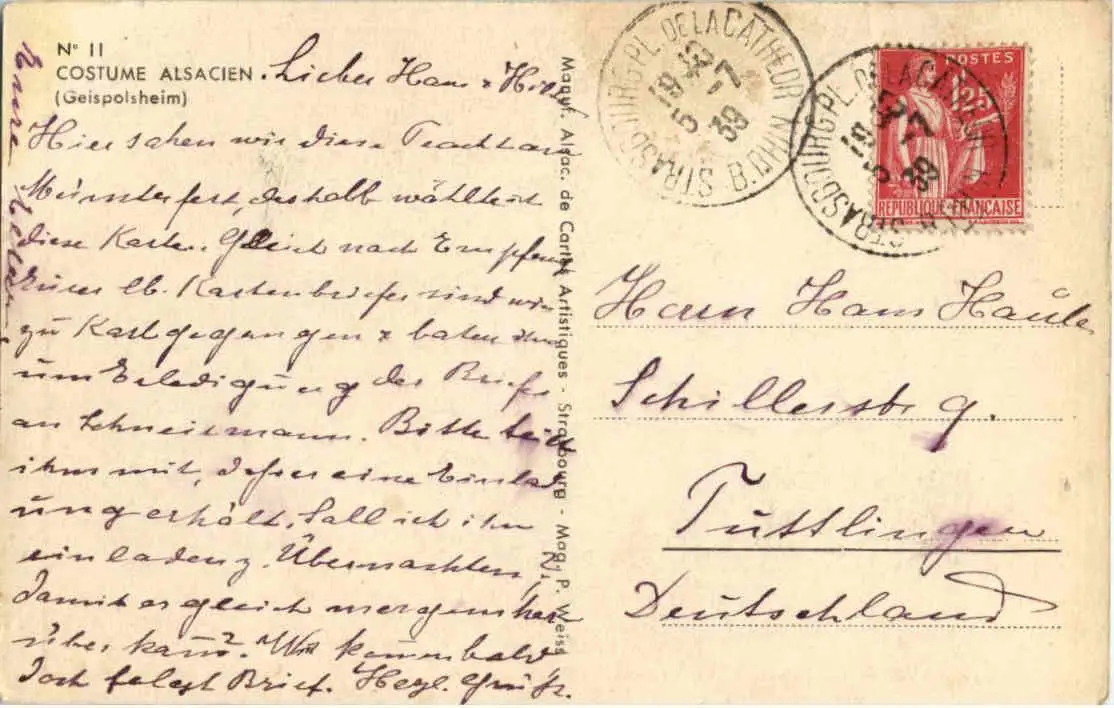 N° 11
COSTUME ALSACIEN.
(Geispolsheim)
Lieber Hans &
Hier sahen wir diese Tracht am
Münsterfest, deshalb wählte ich
diese Karte. Gleich nach Empfang
Eures lb. Kartenbriefes sind wir
zu Karl gegangen & baten ihn
um Erledigung des Briefes
an Schneiemann. Bitte teilt
ihm mit, dass er eine Einlad
ung erhält. Soll ich ihn
einladen z. Übernachten,
damit er gleich morgens her
über kann? Wir kommen bald
doch folgt Brief. Herzl. Grüße
Eure
Manuf. Alsac. de Cartes Artistiques - Strasbourg - Mag. P. Weiss
STRASBOURG-PL. DE LA CATHEDR
B. DU RHIN
18 45
5 -7
39
STRASBOURG-PL. DE LA CATHEDR
18 45
5 -7
39
POSTES
1F25
RÉPUBLIQUE FRANÇAISE
Herrn Hans
Schillerstr 9.
Tuttlingen
Deutschland